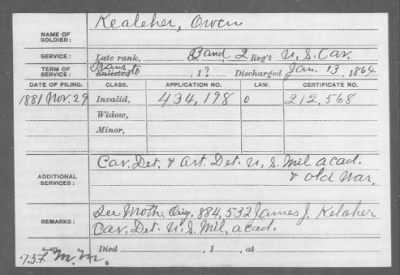 Kealeher, Owen
NAME OF SOLDIER:
SERVICE: Late rank, Band, 2 Reg't U.S. Cav.
TERM OF SERVICE: Enlisted Trans to , 1? Discharged Jan. 13, 1864
DATE OF FILING. CLASS. APPLICATION NO. LAW. CERTIFICATE NO.
1881 Nov. 29 Invalid, 434,198 0 212,568
Widow,
Minor,
ADDITIONAL SERVICES: Cav. Det. & Art. Det. U.S. Mil. acad.
& old War.
REMARKS: See Moth. Orig. 884,532 James J. Kelaher
Cav. Det. U.S. Mil. acad.
Died , 1 , at
737 M.M.